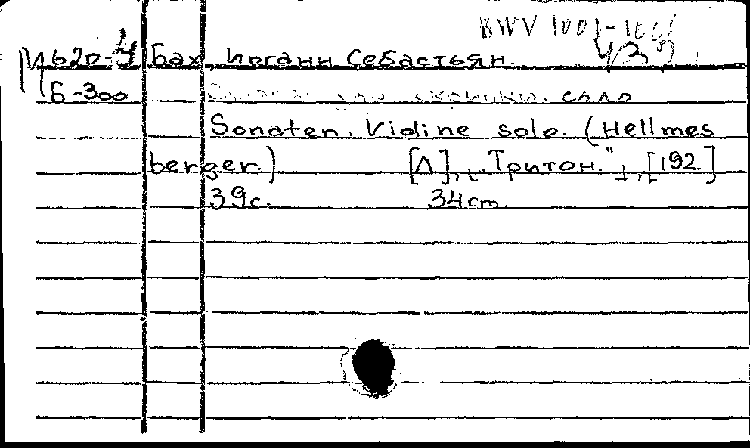 BWV 1001-1006
М 62п-4 Бах, Иоганн Себастьян.
Б-300 скрипки соло
Sonaten. Violine solo. (Hellmes
berger.) [Л], „Тритон.", [192]
39с. 34cm